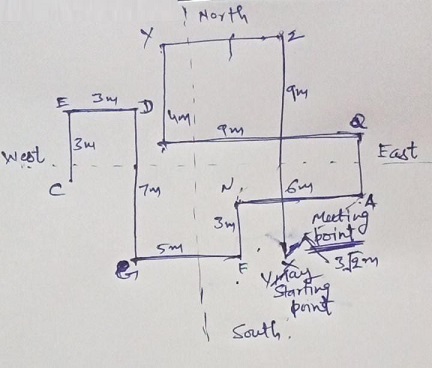 North
Y
Z
E
3m
D
4m
9m
3m
9m
Q
West
East
C
7m
N
6m
A
3m
Meeting
point
G
5m
F
3√2m
X
Starting
point
South.